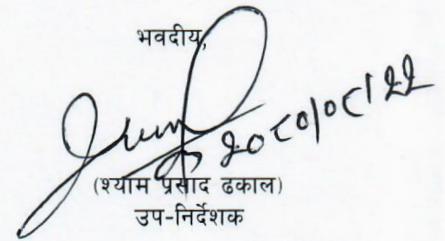 भवदीय,
२०८०/०८/२२
(श्याम प्रसाद ढकाल)
उप-निर्देशक